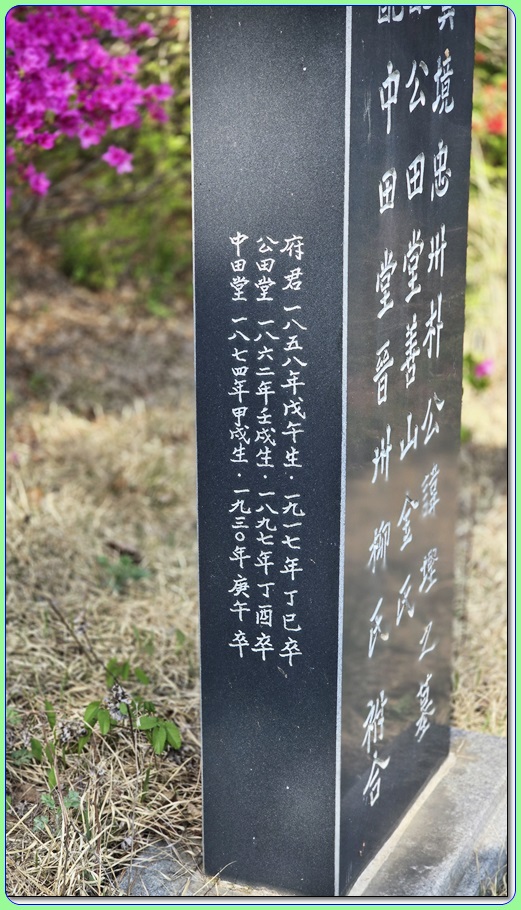 境忠州朴公諱之墓
公田堂善山金氏
配中田堂晉州柳氏 祔合
府君 一八五八年戊午生·一九一七年丁巳卒
公田堂 一八六二年壬戌生·一八九七年丁酉卒
中田堂 一八七四年甲戌生·一九三〇年庚午卒